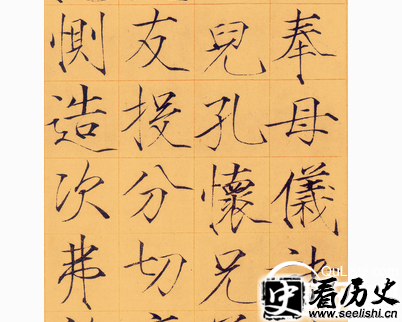 奉母儀
兒孔懷兄
友投分切
惻造次弗
史看历史
www.seelishi.cn